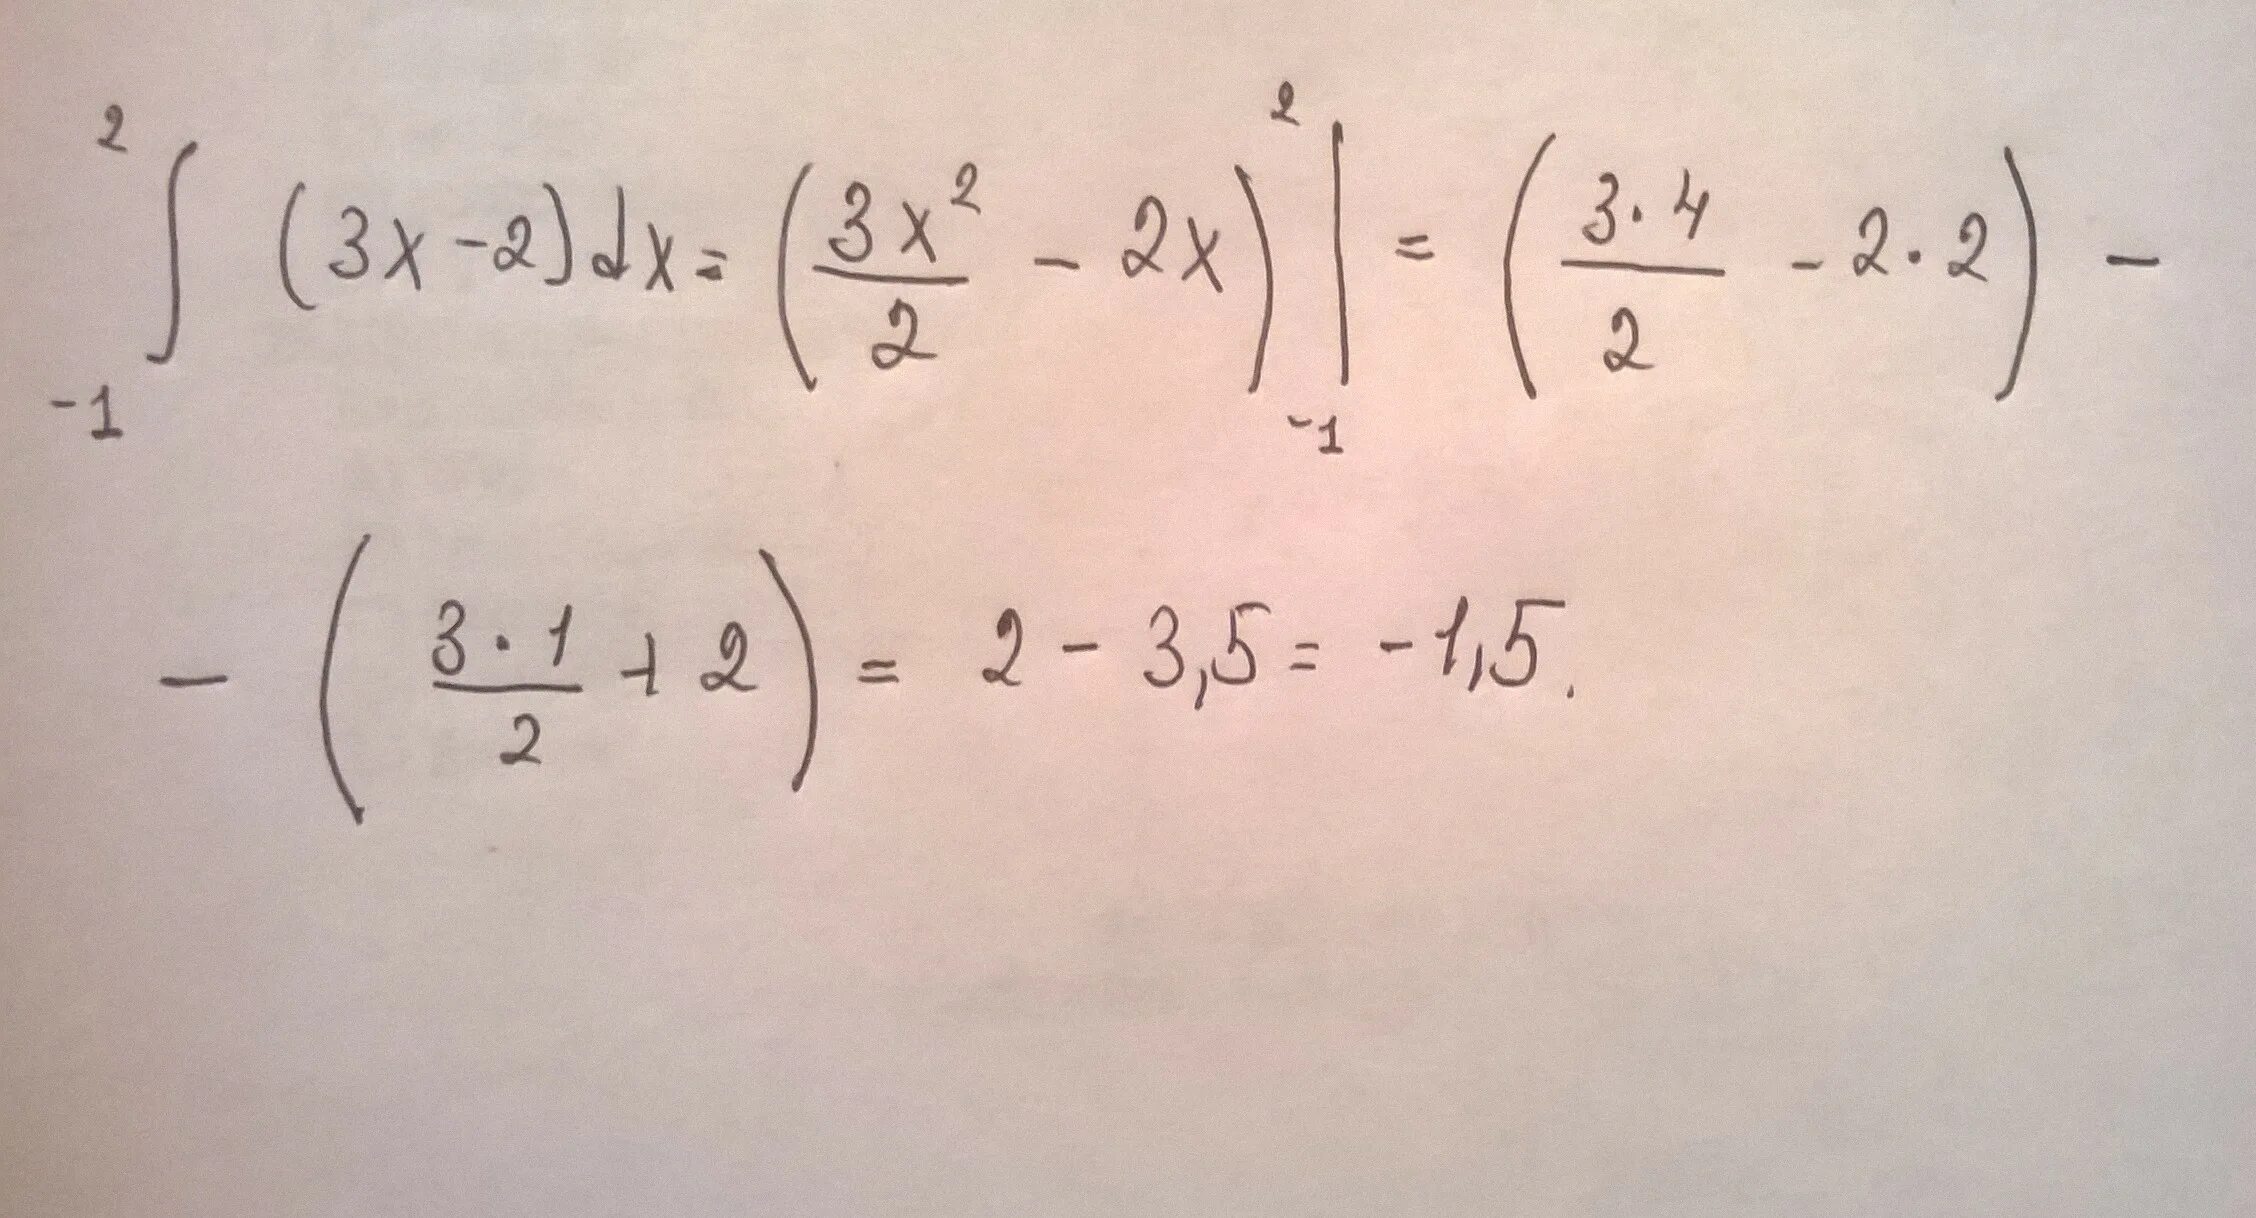 ∫₋₁² (3x-2)dx = (3x²/2 - 2x)|₋₁² = (3·4/2 - 2·2) -
- (3·1/2 + 2) = 2 - 3,5 = -1,5.